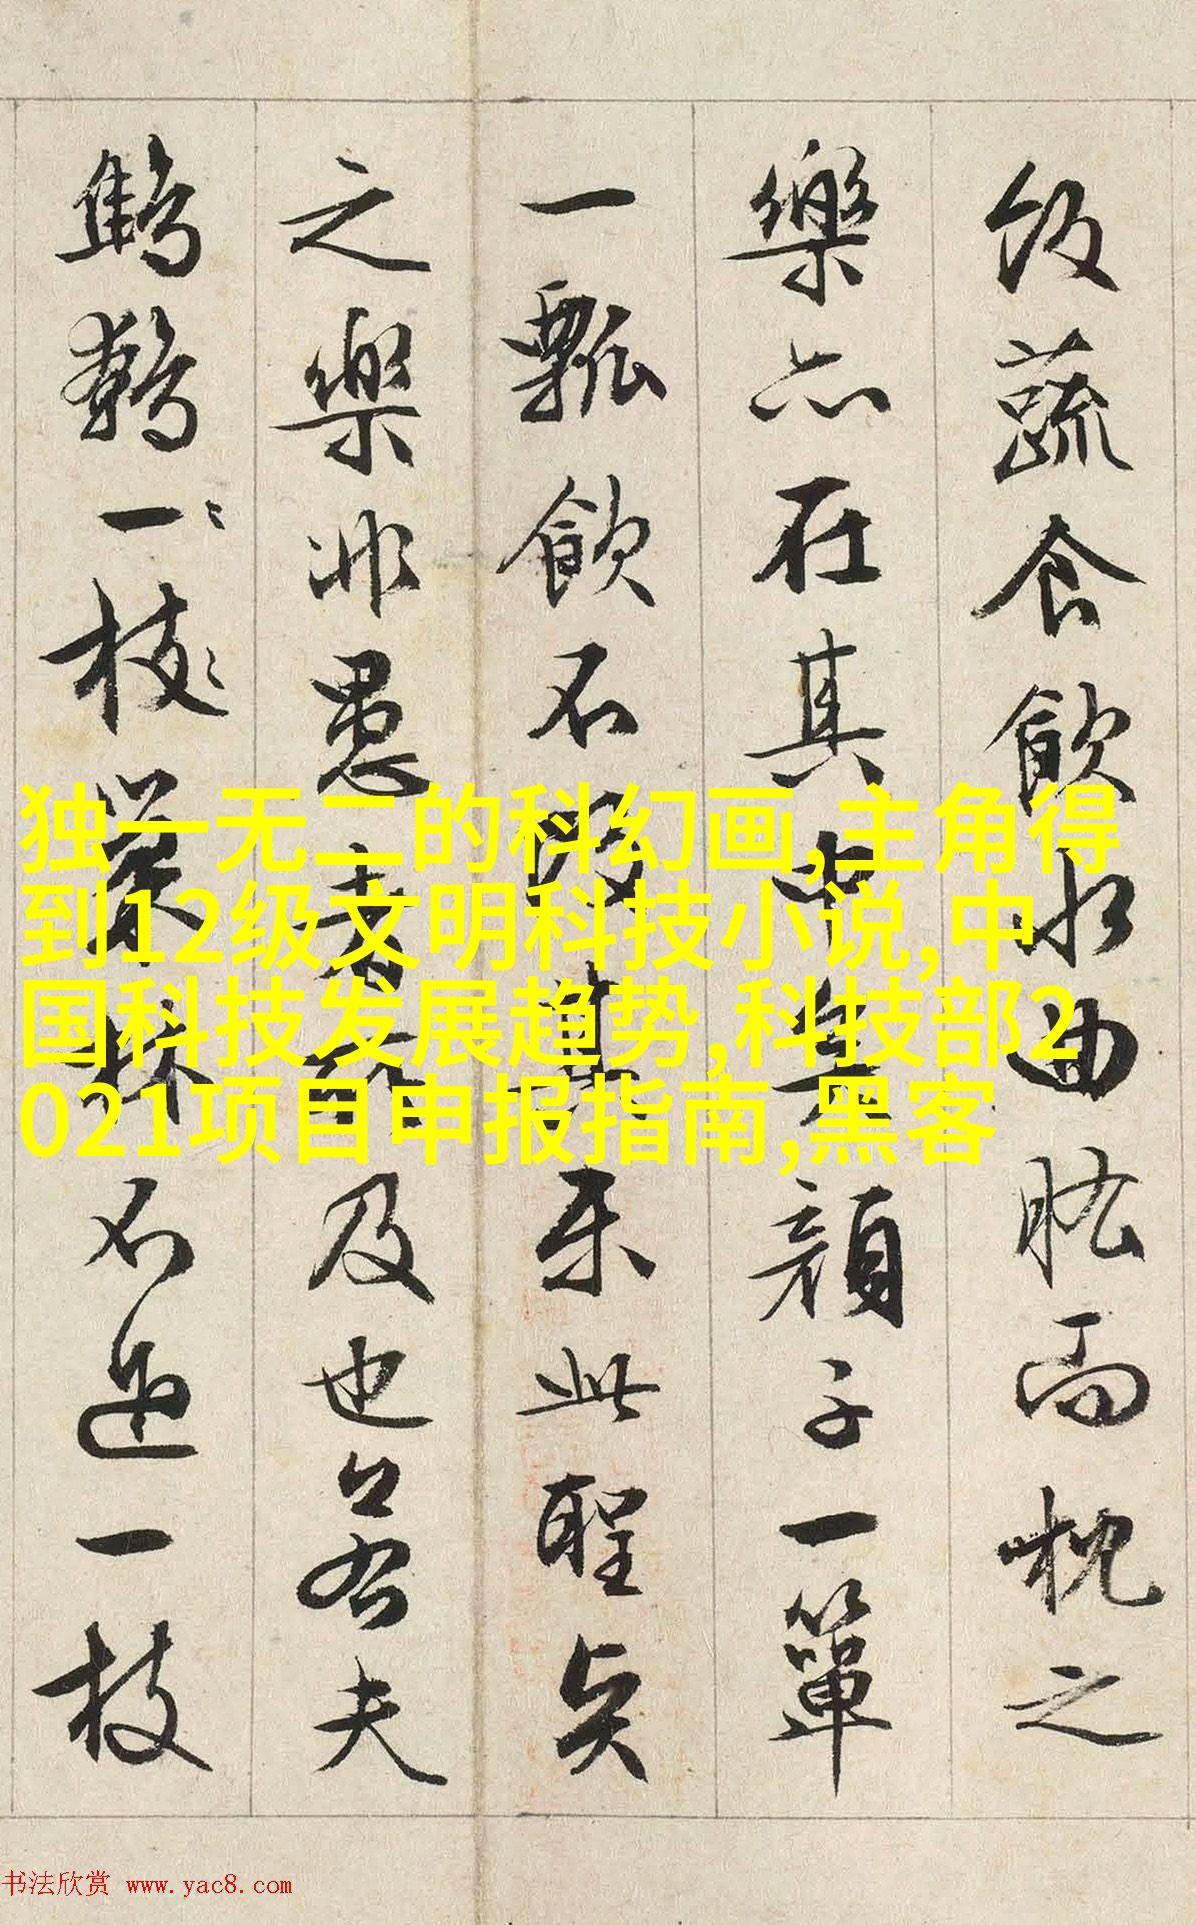 飯蔬食飲水曲肱而枕之
樂亦在其中矣顏子一簞
一瓢飲不改其樂此聖賢
之樂非愚者所及也若夫
鷦鷯一枝巢林不過一枝
独一无二的科幻画,主角得
到12级文明科技小说,中
国科技发展趋势,科技部2
021项目申报指南,黑客
书法欣赏 www.yac8.com